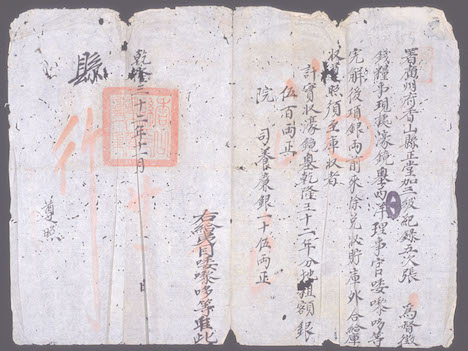 署廣州府香山縣正堂加三級紀錄五次張 為督徵
錢糧事現據濠鏡澳西洋理事官唩嚟哆等
完解後項銀兩前來除兌收貯庫外合給庫
收執照須至庫收者
計實收濠鏡澳乾隆三十二年分地租額銀
伍百兩正
院 司養廉銀一十伍兩正
右給夷目唩嚟哆等准此
乾隆三十二年十一月
縣
遵照